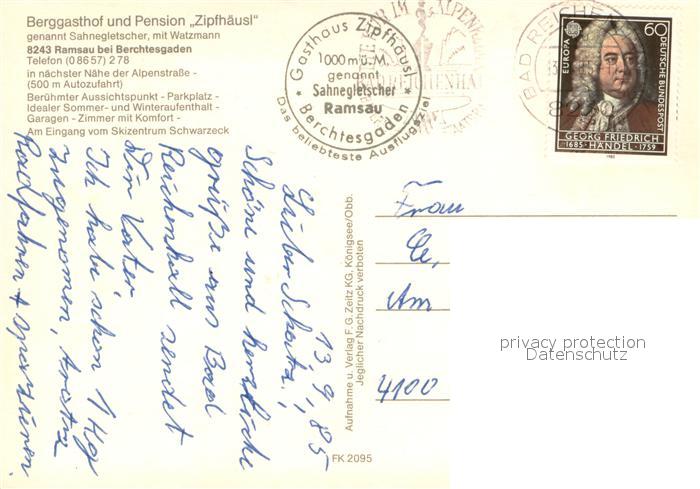 Berggasthof und Pension „Zipfhäusl“
genannt Sahnegletscher, mit Watzmann
8243 Ramsau bei Berchtesgaden
Telefon (08657) 278
in nächster Nähe der Alpenstraße -
(500 m Autozufahrt)
Berühmter Aussichtspunkt - Parkplatz -
Idealer Sommer- und Winteraufenthalt -
Garagen - Zimmer mit Komfort -
Am Eingang vom Skizentrum Schwarzeck
Gasthaus Zipfhäusl
1000 m ü. M.
genannt
Sahnegletscher
Ramsau
Berchtesgaden
Das beliebteste Ausflugsziel
BAD REICHE
13.
EUROPA
60
DEUTSCHE BUNDESPOST
GEORG FRIEDRICH
1685 · HÄNDEL · 1759
13.9.85
Lieber Schatz!,
Schöne und herzliche
Grüße aus Bad
Reichenhall sendet
Dir Vater
Ich habe schon 1 Kg
zugenomen, trotz
Radfahren + spazieren.
Aufnahme u. Verlag F. G. Zeitz KG, Königsee/Obb.
Jeglicher Nachdruck verboten
Frau
Am
4100
privacy protection
Datenschutz
FK 2095